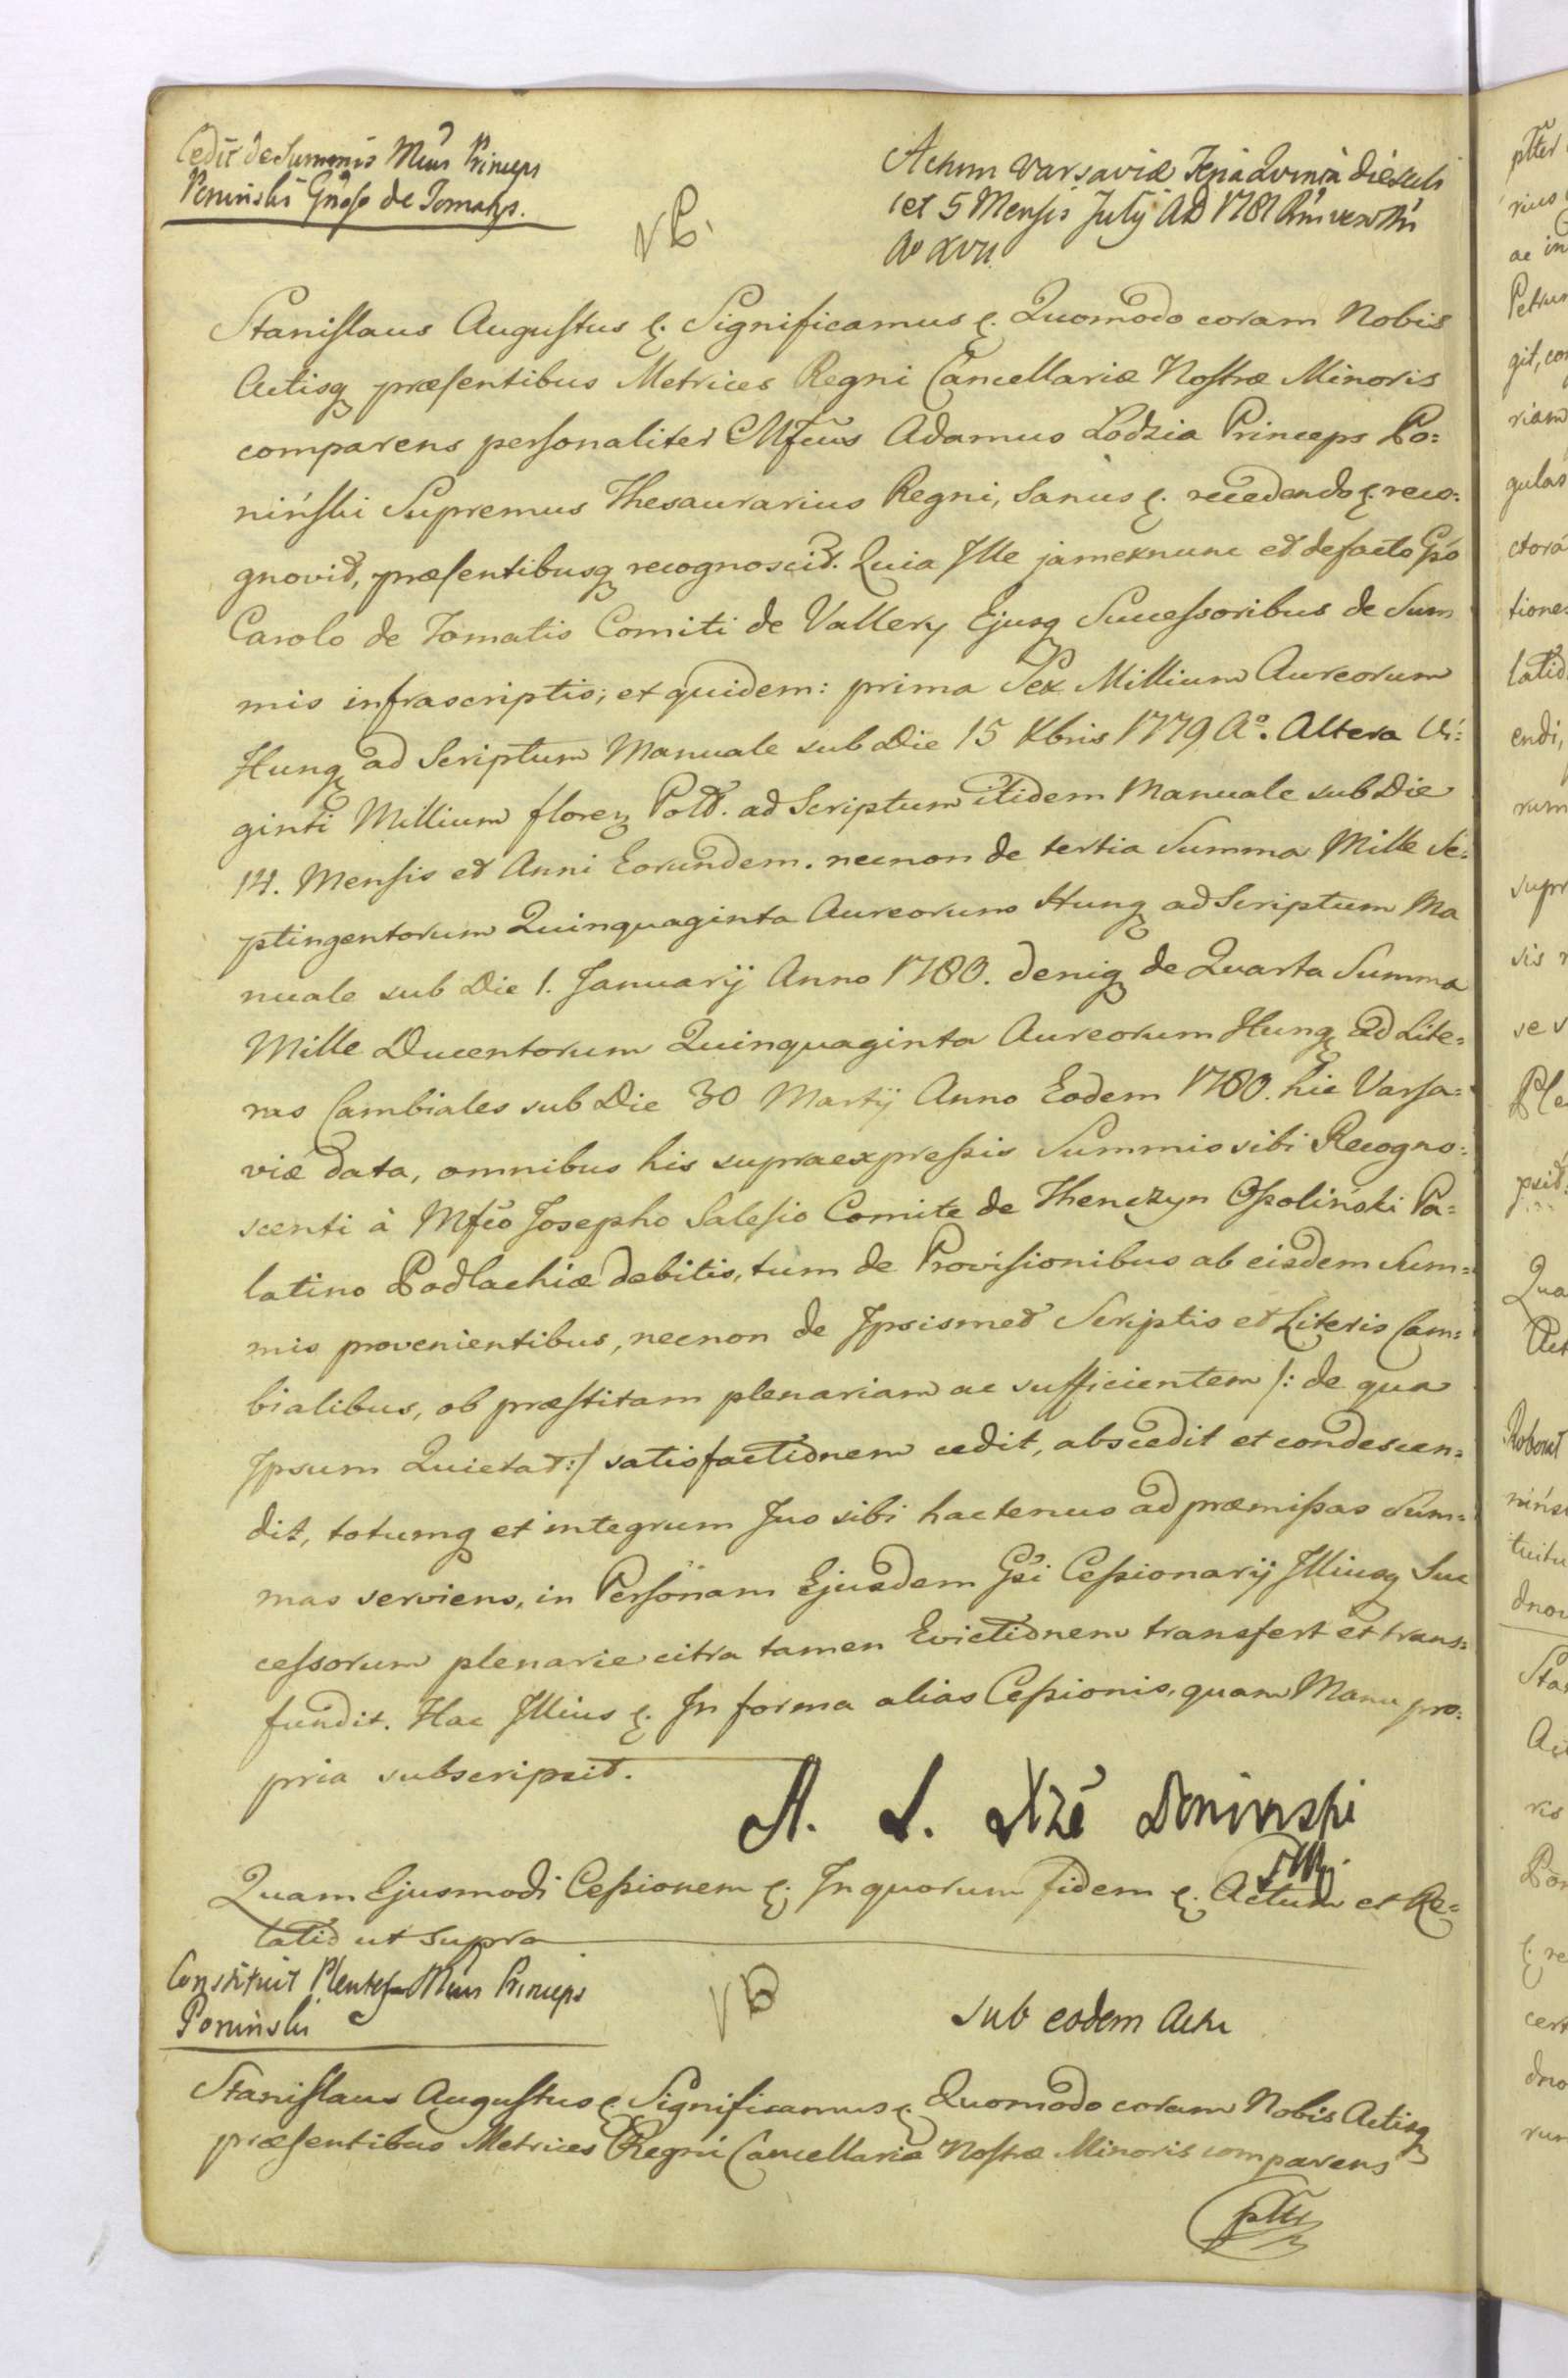 Cedit de Summis Mcus Princeps
Poniński Gnoso de Tomatis.
NB.
Actum Varsaviæ Feria Quinta die scili
cet 5 Mensis July AD 1781 Rni vero Nri
Ao XVII.
Stanislaus Augustus &. Significamus &. Quomodo coram Nobis
Actisq præsentibus Metrices Regni Cancellariæ Nostræ Minoris
comparens personaliter Mfcus Adamus Łodzia Princeps Po=
niński Supremus Thesaurarius Regni, Sanus &. recedendo &. reco=
gnovit, præsentibusq recognoscit. Quia Ille jam exnunc et de facto Gso
Carolo de Tomatis Comiti de Vallery Ejusq Successoribus de Sum
mis infrascriptis; et quidem: prima Sex Millium Aureorum
Hung ad Scriptum Manuale sub Die 15 Xbris 1779 Ao. Altera Vi=
ginti Millium floren Pold. ad Scriptum itidem Manuale sub Die
14. Mensis et Anni Eorundem. necnon de tertia Summa Mille Se=
ptingentorum Quinquaginta Aureorum Hung ad Scriptum Ma
nuale sub Die 1. Januarij Anno 1780. deniq de Quarta Summa
Mille Ducentorum Quinquaginta Aureorum Hung ad Lite=
ras Cambiales sub Die 30 Martij Anno Eodem 1780. hic Varsa=
viæ data, omnibus his supraexpressis Summis sibi Recogno=
scenti à Mfco Josepho Salesio Comite de Thenczyn Ossoliński Pa=
latino Podlachiæ debitis, tum de Provisionibus ab eisdem Sum=
mis provenientibus, necnon de Ipsismet Scriptis et Literis Cam=
bialibus, ob præstitam plenariam ac sufficientem /: de qua
Ipsum Quietat :/ satisfactionem cedit, abscedit et condescen=
dit, totumq et integrum Jus sibi hactenus ad præmissas Sum=
mas serviens, in Personam Ejusdem Gsi Cessionarij Illiusq Suc
cessorum plenarie citra tamen Evictionem transfert et trans=
fundit. Hac Illius &. In forma alias Cessionis, quam Manu pro=
pria subscripsit.
A. Ł. Xżē Poninski
Quam Ejusmodi Cessionem &. In quorum fidem &. Actum et Re=
latio ut supra
Constituit Plentes Mcus Princeps
Poniński
NB
sub eodem Actu
Stanislaus Augustus & Significamus & Quomodo coram Nobis Actisq
præsentibus Metrices Regni Cancellariæ Nostræ Minoris comparens
pltr